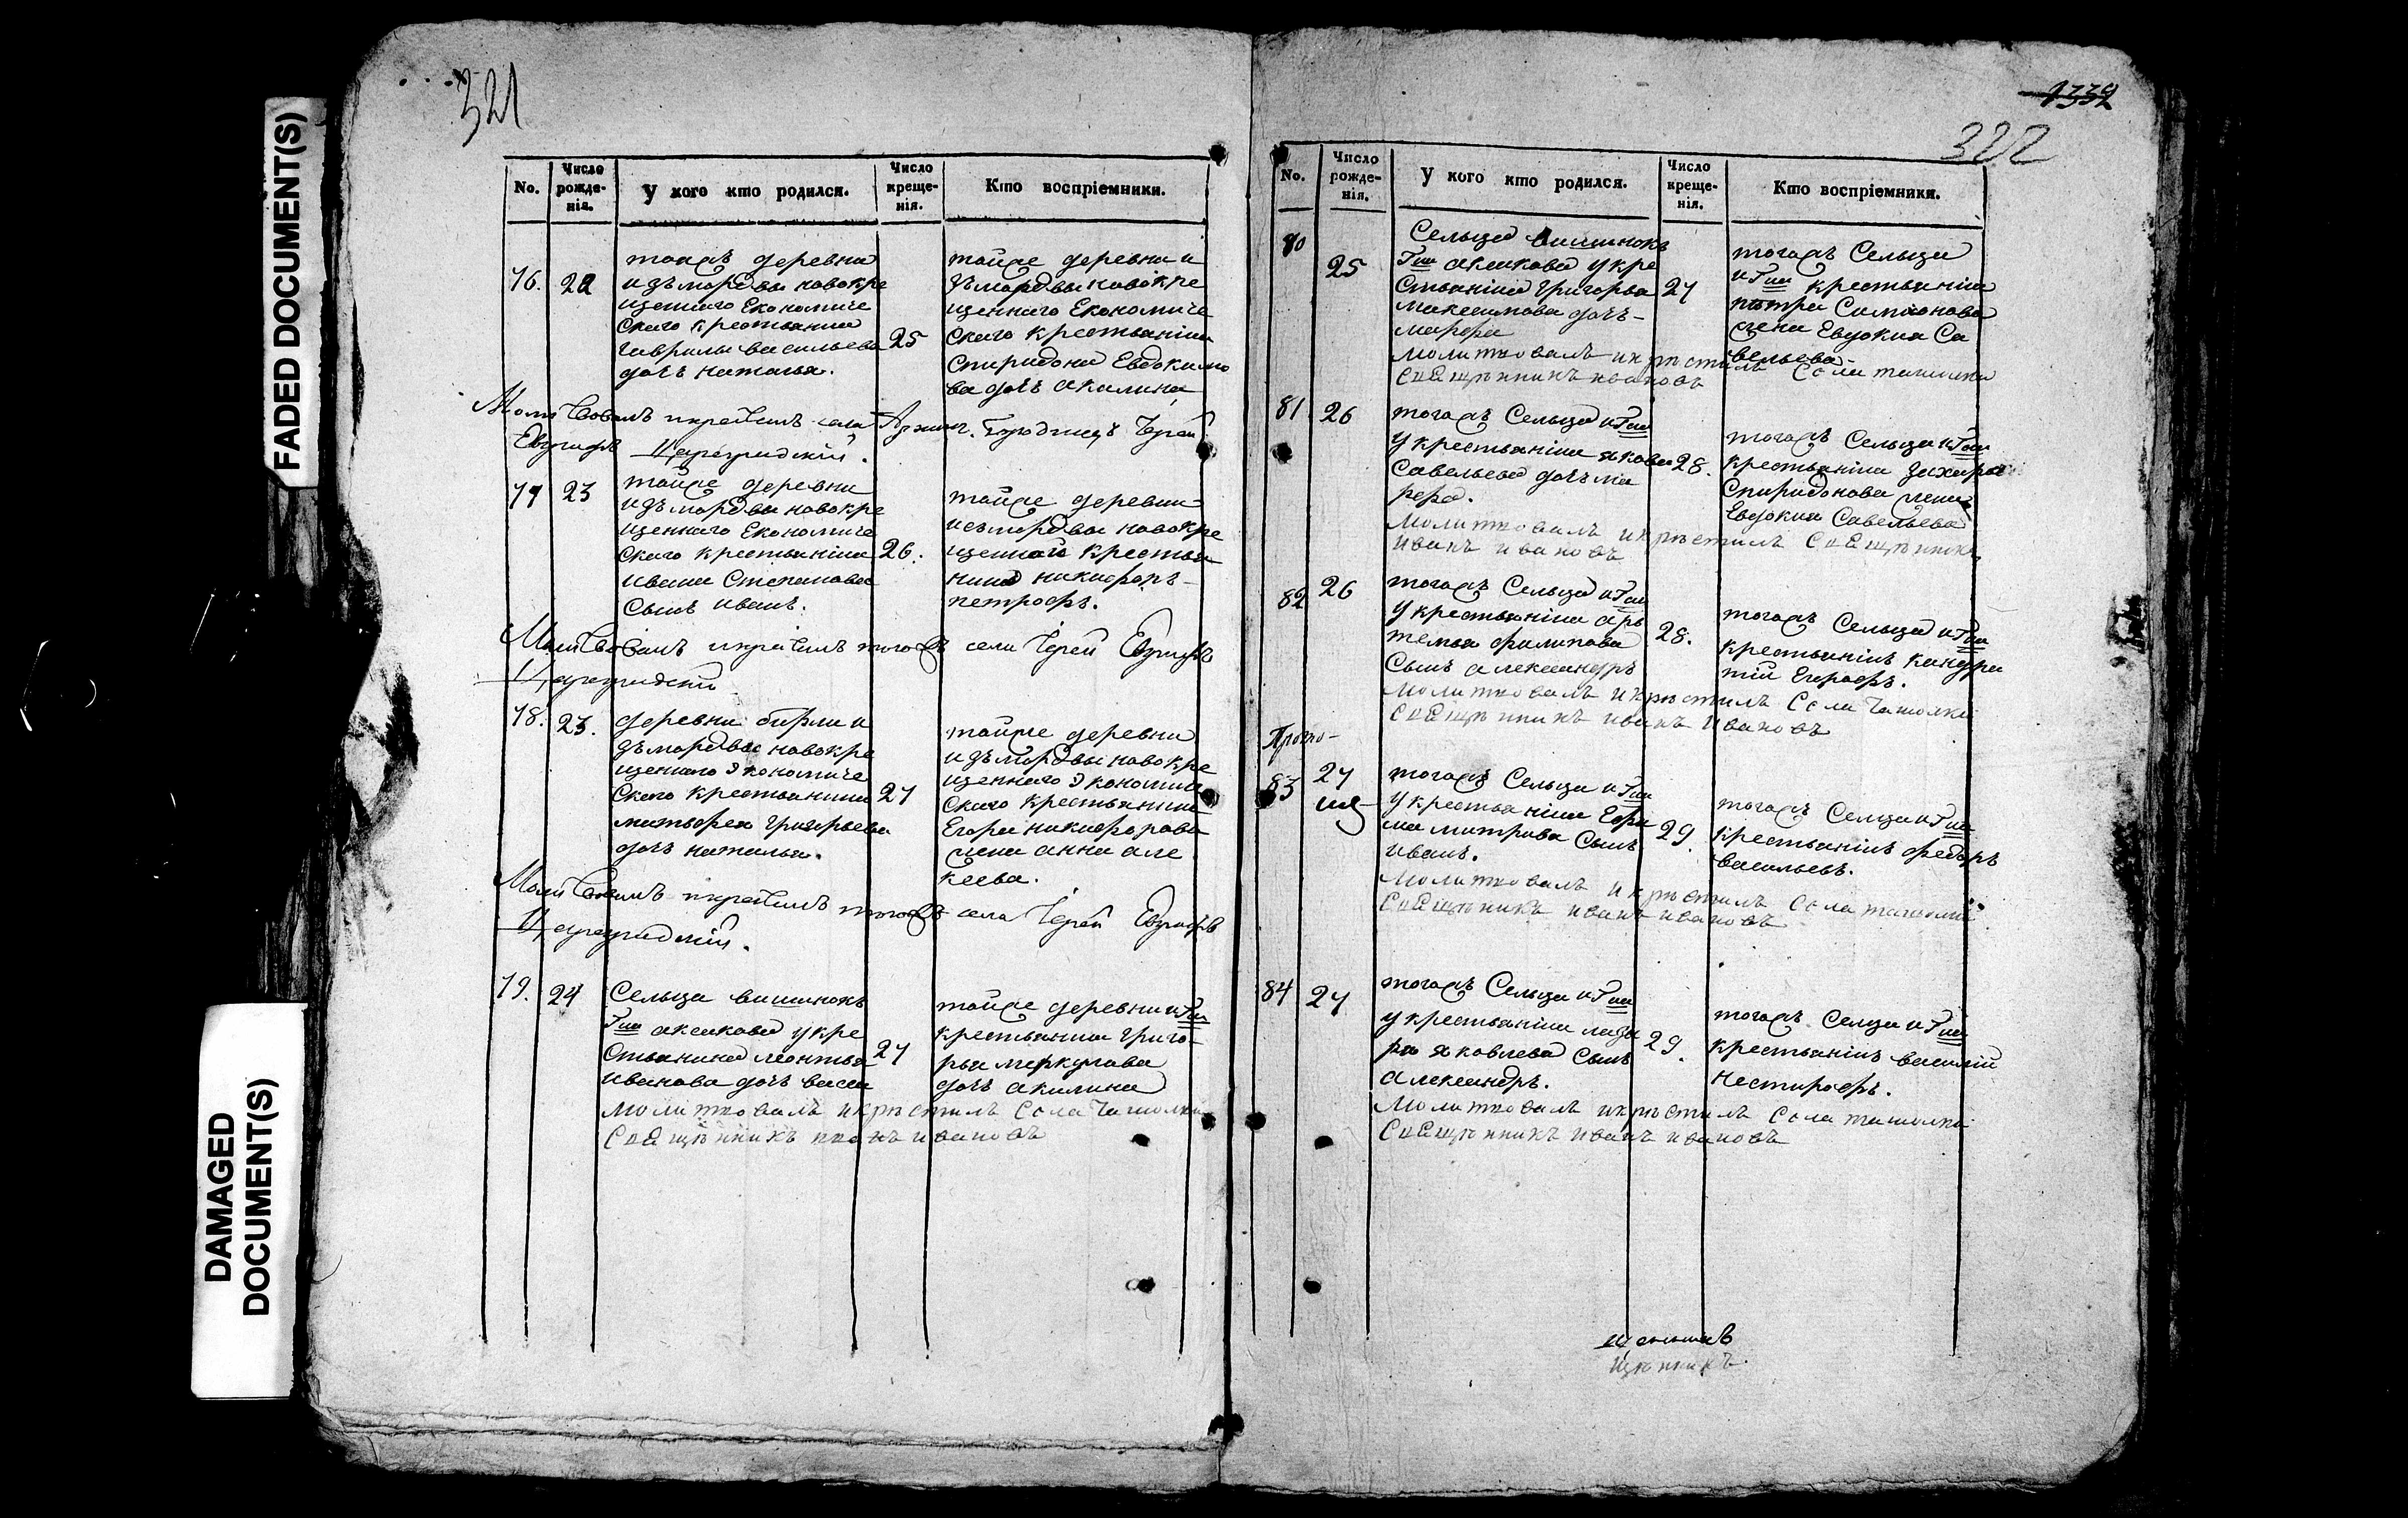 FADED DOCUMENT(S)
DAMAGED
DOCUMENT(S)
321
No.
Число
рожде-
нія.
У кого кто родился.
Число
креще-
нія.
Кто воспріемники.
76.
22
тояжъ деревни
изъ мордвы новокре
щеннаго Економиче
скаго крестьянина
гаврилы васильева
дочь наталья.
25
тойже деревни и
зъ мордвы новокре
щеннаго Економиче
скаго крестьянина
спиридона Евдокимо
ва дочь акилина
Молитвовалъ икрестилъ села Городищъ Іерей
Евграфъ Цареградскій.
77
23
тойже деревни
изъ мордвы новокре
щеннаго Економиче
скаго крестьянина
ивана Степанова
сынъ иванъ.
26.
тойже деревни
изъ мордвы новокре
щенной крестья
нинъ никифоръ
петрофъ.
Молитвовалъ икрестилъ тогожъ села Іерей Евграфъ
Цареградскій
78.
23.
деревни
зъ мордвы новокре
щеннаго Экономиче
скаго крестьянина
матьфея григорьева
дочь наталья.
27
тойже деревни
изъ мордвы новокре
щеннаго Экономиче
скаго крестьянина
Егора никифорова
жена анна але
кеева.
Молитвовалъ икрестилъ тогожъ села Іерей Евграфъ
Цареградскій.
79.
24
Сельца вишнокъ
Гжи аксакова у кре
стьянина леонтья
иванова дочь васи
27
тойже деревни иГжи
крестьянина григо
рья меркулава
дочь акилина
молитвовалъ икрѣстилъ села
свещѣнникъ иванъ ивановъ
1339
322
No.
Число
рожде-
нія.
У кого кто родился.
Число
креще-
нія.
Кто воспріемники.
80
25
Сельца вишнокъ
Гжи аксакова укре
стьяніна григорья
максимова дочь
марфа
27
тогожъ Сельца
иГжи крестьяніна
петра Симионова
жена Евдокия Са
вельева
молитвовалъ икрѣстилъ села ташолки
свещѣнникъ ивановъ
81
26
тогожъ Сельца иГжи
у крестьяніна якова
савельева дочь ма
рфа.
28.
тогожъ Сельца иГжи
крестьяніна захара
Спиридонова жена
Евдокия Савельева
молитвовалъ икрѣстилъ свещѣнникъ
иванъ ивановъ
82
26
тогожъ Сельца иГжи
у крестьяніна ар
темья филипова
сынъ александръ
28.
тогожъ Сельца иГжи
крестьянінъ кандра
тій Егорофъ.
молитвовалъ икрѣстилъ села ташолки
свещѣнникъ иванъ ивановъ
83
27
тогожъ Сельца иГжи
у крестьяніна Ефи
ма митрова сынъ
иванъ.
29.
тогожъ Селца иГжи
крестьянінъ федоръ
васильевъ.
молитвовалъ икрѣстилъ села ташолки
свещѣникъ иванъ ивановъ
84
27
тогожъ Сельца иГжи
у крестьяніна лаза
ря яковлева сынъ
александръ.
29.
тогожъ Селца иГжи
крестьянінъ василій
нестирофъ.
молитвовалъ икрѣстилъ села ташолки
свещѣнникъ иванъ ивановъ
щѣнникъ.